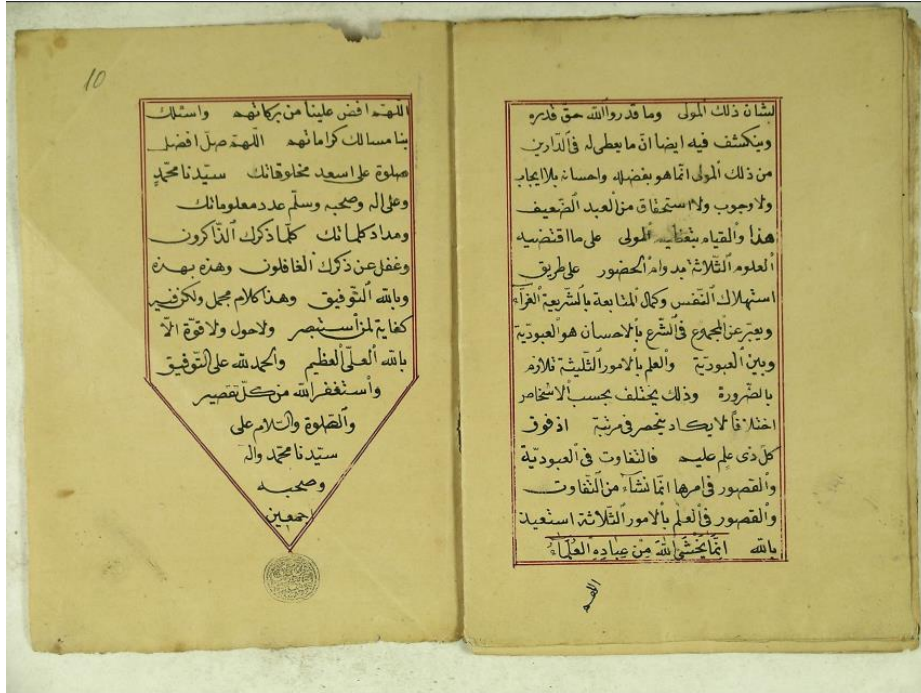 لشان ذلك المولى وما قدروا الله حق قدره
وينكشف فيه ايضا انّ ما يعطى له فى الدّارين
من ذلك المولى انّما هو بفضله واحسانه بلا ايجاب
ولا وجوب ولا استحقاق من العبد الضّعيف
هذا والقيام بتعظيم المولى على ما اقتضيه
العلوم الثّلاثة بدوام الحضور على طريق
استهلاك النّفس وكمال المتابعة بالشّريعة الغرّاء
ويعبّر عن المجموع فى الشّرع بالاحسان هو العبوديّة
وبين العبوديّة والعلم بالامور الثّليثة تلازم
بالضّرورة وذلك يختلف بحسب الاشخاص
اختلافًا لا يكاد ينحصر فى مرتبة اذ فوق
كلّ ذى علم عليم فالتفاوت فى العبوديّة
والقصور فى امرها انّما نشاء من التّفاوت
والقصور فى العلم بالامور الثّلاثة استعيذ
بالله انّما يَخْشَى اللهَ مِنْ عِبَادِهِ العُلَمَاءُ
اللهم
10
اللّهمّ افض علينا من بركاتهم واسئلك
بنا مسالك كراماتهم اللّهمّ صلّ افضل
صلوة على اسعد مخلوقاتك سيّدنا محمّدٍ
وعلى اله وصحبه وسلّم عدد معلوماتك
ومداد كلماتك كلّما ذكرك الذّاكرون
وغفل عن ذكرك الغافلون وهذه بهذه
وبالله التّوفيق وهذا كلام مجمل ولكن فيه
كفاية لمن استبصر ولا حول ولا قوّة الّا
بالله العلىّ العظيم والحمد لله على التّوفيق
واستغفر الله من كلّ تقصير
والصّلوة والسّلام على
سيّدنا محمّد واله
وصحبه
اجمعين